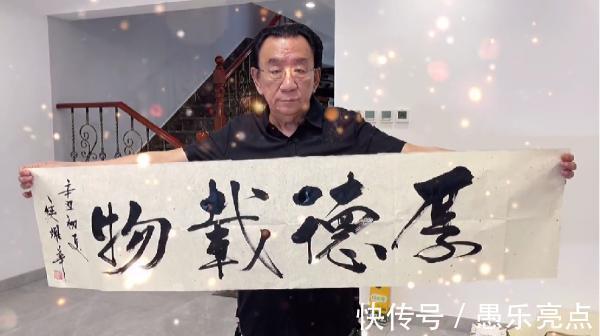 厚德載物
辛丑初夏
侯耀華
快传号 / 愚乐亮点